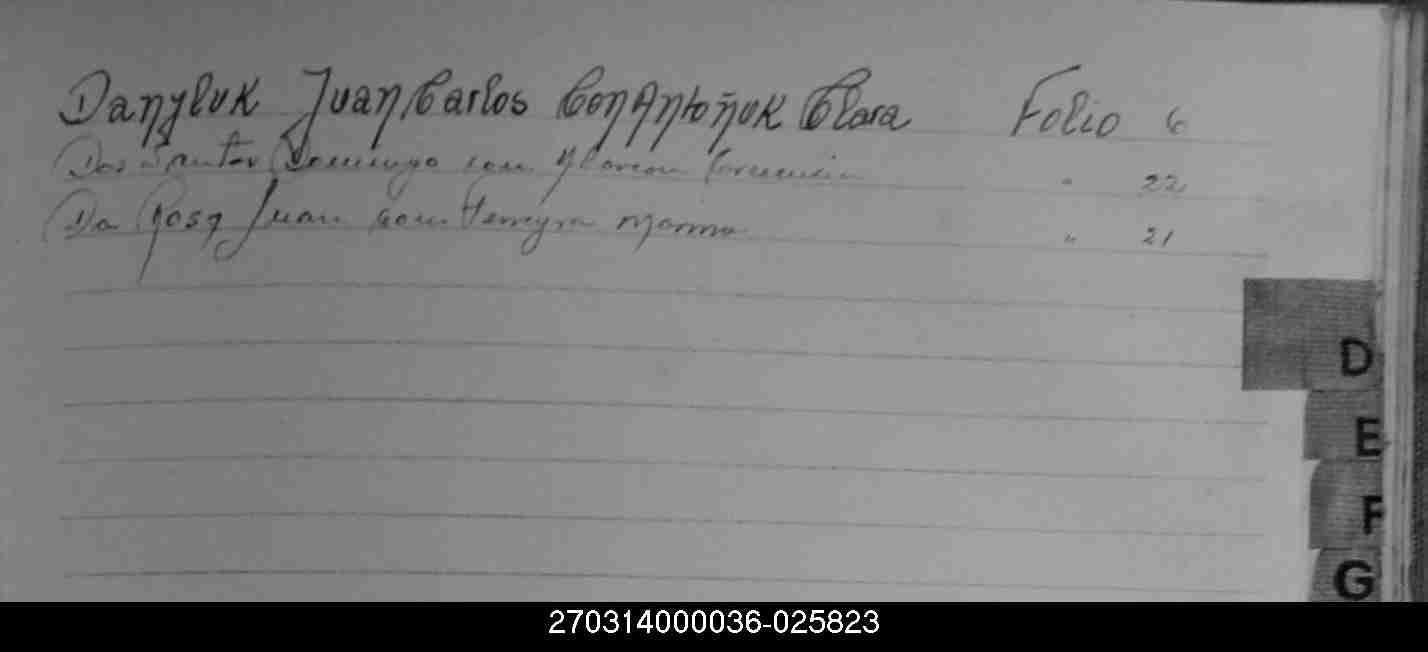 Danyluk Juan Carlos Con Antoñuk Clara Folio 6
Dos Santos Domingo con " 22
Da Rosa Juan con Ferreyra Norma " 21
D
E
F
G
270314000036-025823